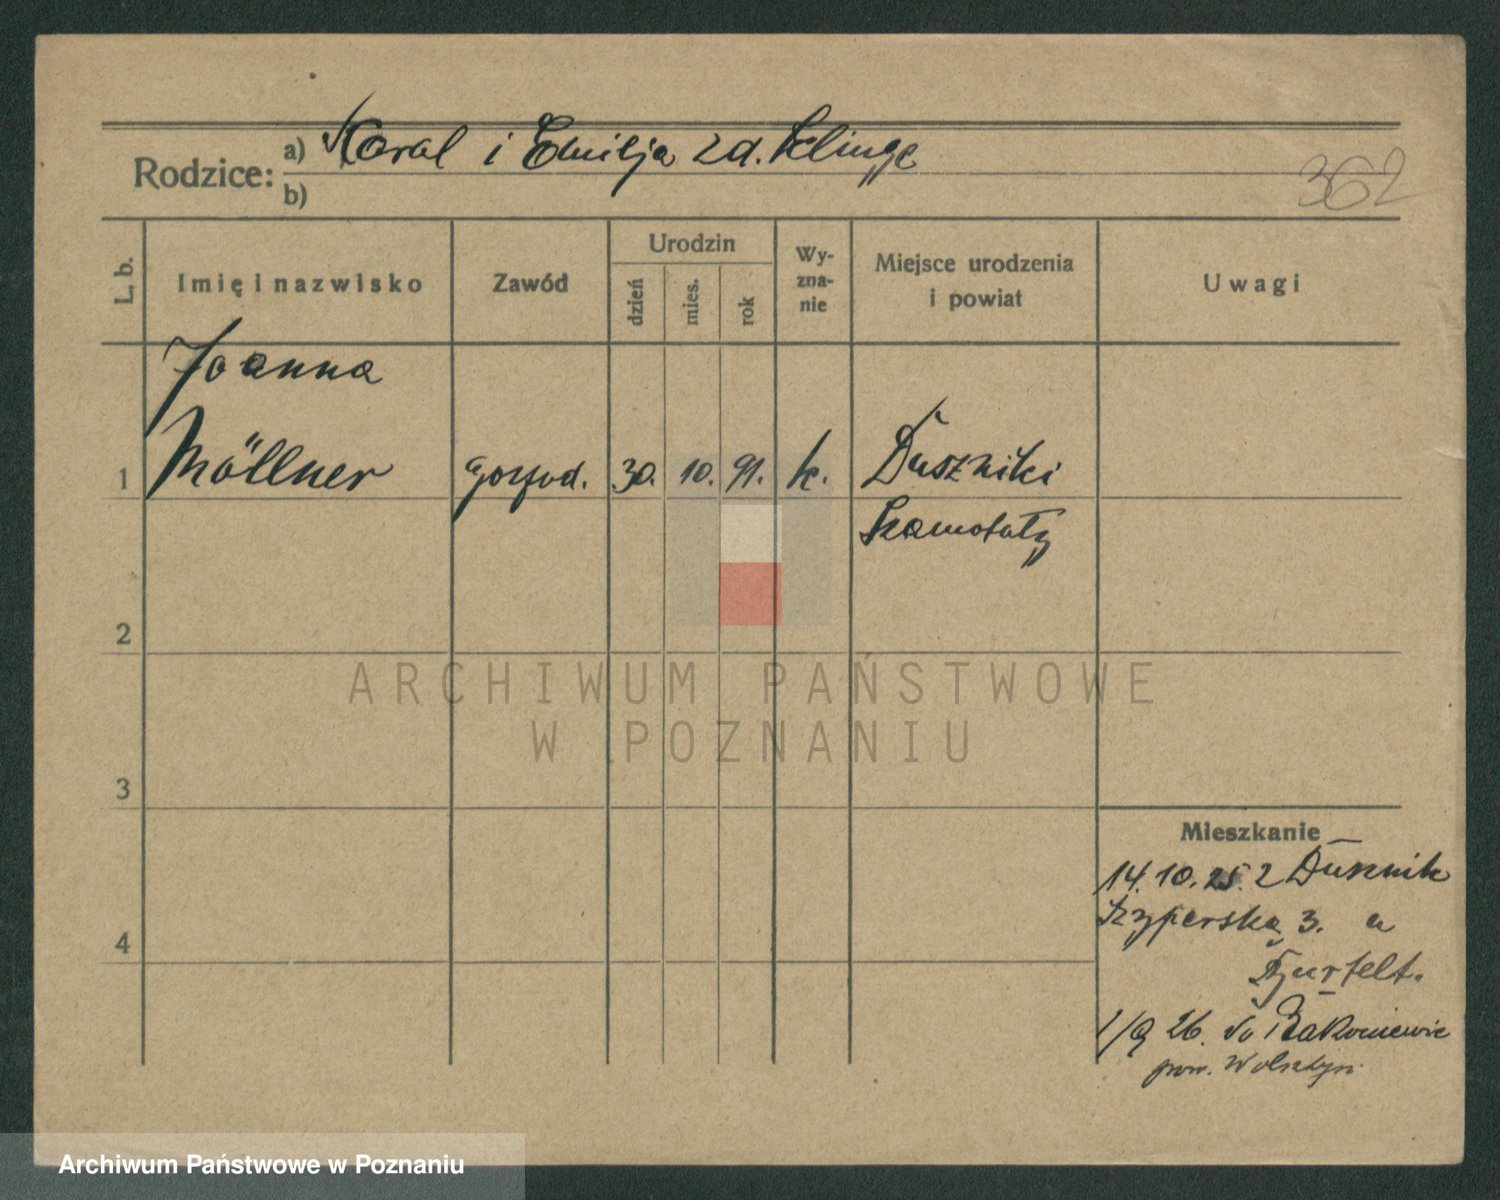 Rodzice: a) Karol i Emilja zd. Klinge
b)
362
L. b.
Imię i nazwisko
Zawód
Urodzin
dzień
mies.
rok
Wy-
zna-
nie
Miejsce urodzenia
i powiat
Uwagi
Joanna
1 Möllner gospod. 30. 10. 91. k. Duszniki
Szamotuły
2
ARCHIWUM PAŃSTWOWE
W POZNANIU
3
Mieszkanie
14.10.25. z Dusznik
Szyperska 3. u
4
1/9 26. do Rakoniewic
pow. Wolsztyn
Archiwum Państwowe w Poznaniu